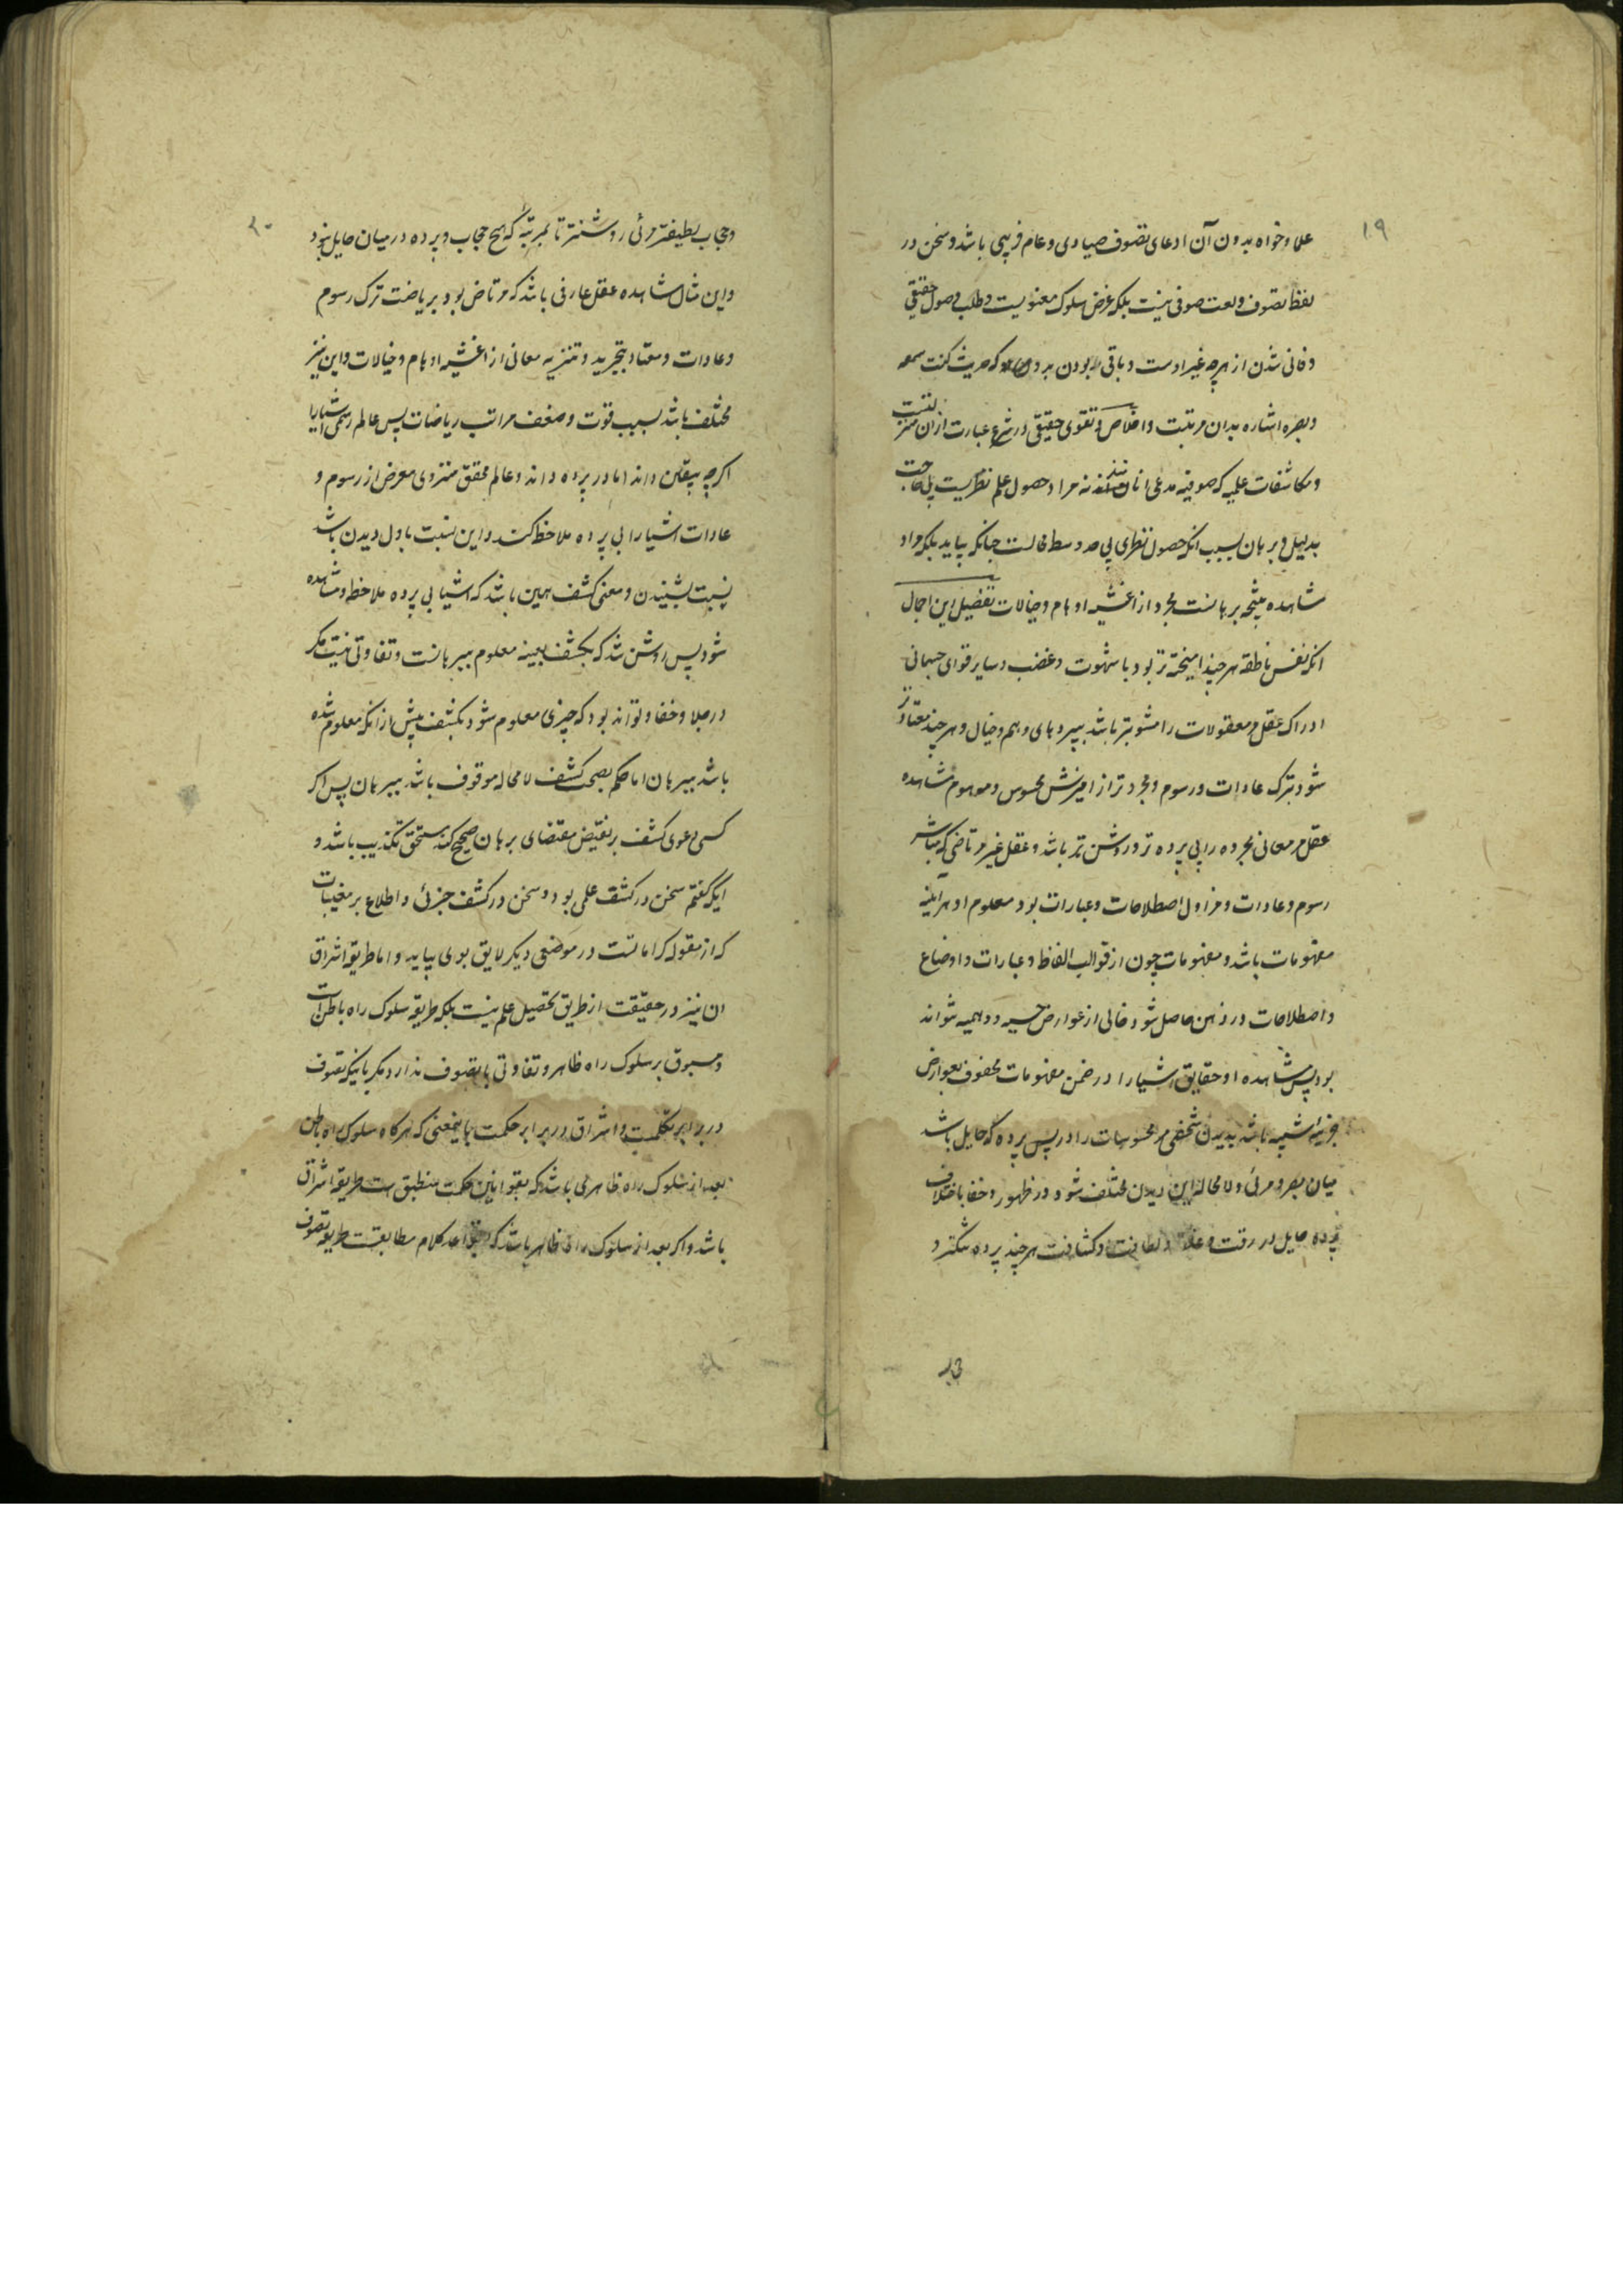 ۱۹
علما و خواه بدون آن ادعای تصوف صیادی و عام فریبی باشد و سخن در
لفظ تصوف و لغت صوفی نیست بلکه غرض سلوک معنویست و طلب وصول حقیقی
و فانی شدن از هرچه غیر اوست و باقی بودن بدو که حدیث کنت سمعه
و بصره اشاره بدان مرتبت و اخلاص و تقوی حقیقی در شرع عبارت از آن منزلتست
و مکاشفات علمیه که صوفیه مدعی انانند نه مراد حصول علم نظریست بی حاجت
بدلیل و برهان بسبب انکه حصول نظری بی حد وسط محالست چنانکه بیاید بلکه مراد
مشاهده نتیجه برهانست مجرد از اغشیه اوهام و خیالات تفصیل این اجمال
انکه نفس ناطقه هرچند امیخته تر بود با شهوت و غضب و سایر قوای جسمانی
ادراک عقل مر معقولات را مشوبتر باشد بپردهای وهم و خیال و هرچند معتادتر
شود بترک عادات و رسوم و مجردتر از امیزش محسوس و موهوم مشاهده
عقل مر معانی مجرده را بی پرده تر و روشن تر باشد و عقل غیر مرتاضی که مباشر
رسوم و عادات و مزاول اصطلاحات و عبارات بود معلوم او هرآینه
مفهومات باشد و مفهومات چون از قوالب الفاظ و عبارات و اوضاع
و اصطلاحات در ذهن حاصل شود خالی از عوارض حسیه و وهمیه نتواند
بود پس مشاهده او حقایق اشیا را در ضمن مفهومات محفوف بعوارض
جزئیه اشبیه باشد بدیدن شخصی مر محسوسات را در پس پرده که حایل باشد
میان بصر و مرئی و لا محاله این دیدن مختلف شود در ظهور و خفا باختلاف
پرده حایل در رقت و غلظت و لطافت و کثافت هرچند پرده تنکتر و
۲۰
و حجاب لطیفتر مرئی روشنتر تا بمرتبه که هیچ حجاب و پرده در میان حایل نبود
و این مثال مشاهده عقل عارفی باشد که مرتاض بود بریاضت ترک رسوم
و عادات و معتاد بتجرید و تنزیه معانی از اغشیه اوهام و خیالات و این نیز
مختلف باشد بسبب قوت و ضعف مراتب ریاضات پس عالم رسمی اشیا را
اگرچه بیقین داند اما در پرده داند و عالم محقق منزوی معرض از رسوم و
عادات اشیا را بی پرده ملاحظه کند و این نسبت باول دیدن باشد
نسبت بشنیدن و معنی کشف همین باشد که اشیا بی پرده ملاحظه و مشاهده
شود پس روشن شد که بکشف بعینه معلوم ببرهانست و تفاوتی نیست مگر
در جلا و خفا و نتواند بود که چیزی معلوم شود بکشف پیش از انکه معلوم شده
باشد ببرهان اما حکم بصحت کشف لا محاله موقوف باشد ببرهان پس اگر
کسی دعوی کشف بر نقیض مقتضای برهان صحیح کند مستحق تکذیب باشد و
اینکه گفتم سخن در کشف علمی بود و سخن در کشف جزئی و اطلاع بر مغیبات
که از مقوله کراماتست در موضعی دیگر لایق بوی بیاید و اما طریقه اشراق
ان نیز در حقیقت از طریق تحصیل علم نیست بلکه طریقه سلوک راه باطنست
و مسبوق بر سلوک راه ظاهر و تفاوتی با تصوف ندارد مگر باینکه تصوف
در برابر تکلمست و اشراق در برابر حکمت باینمعنی که هرگاه سلوک راه باطن
بعد از سلوک راه ظاهری باشد که بقوانین حکمت منطبق است طریقه اشراق
باشد و اگر بعد از سلوک راه ظاهر باشد که بقواعد کلام مطابقست طریقه تصوف